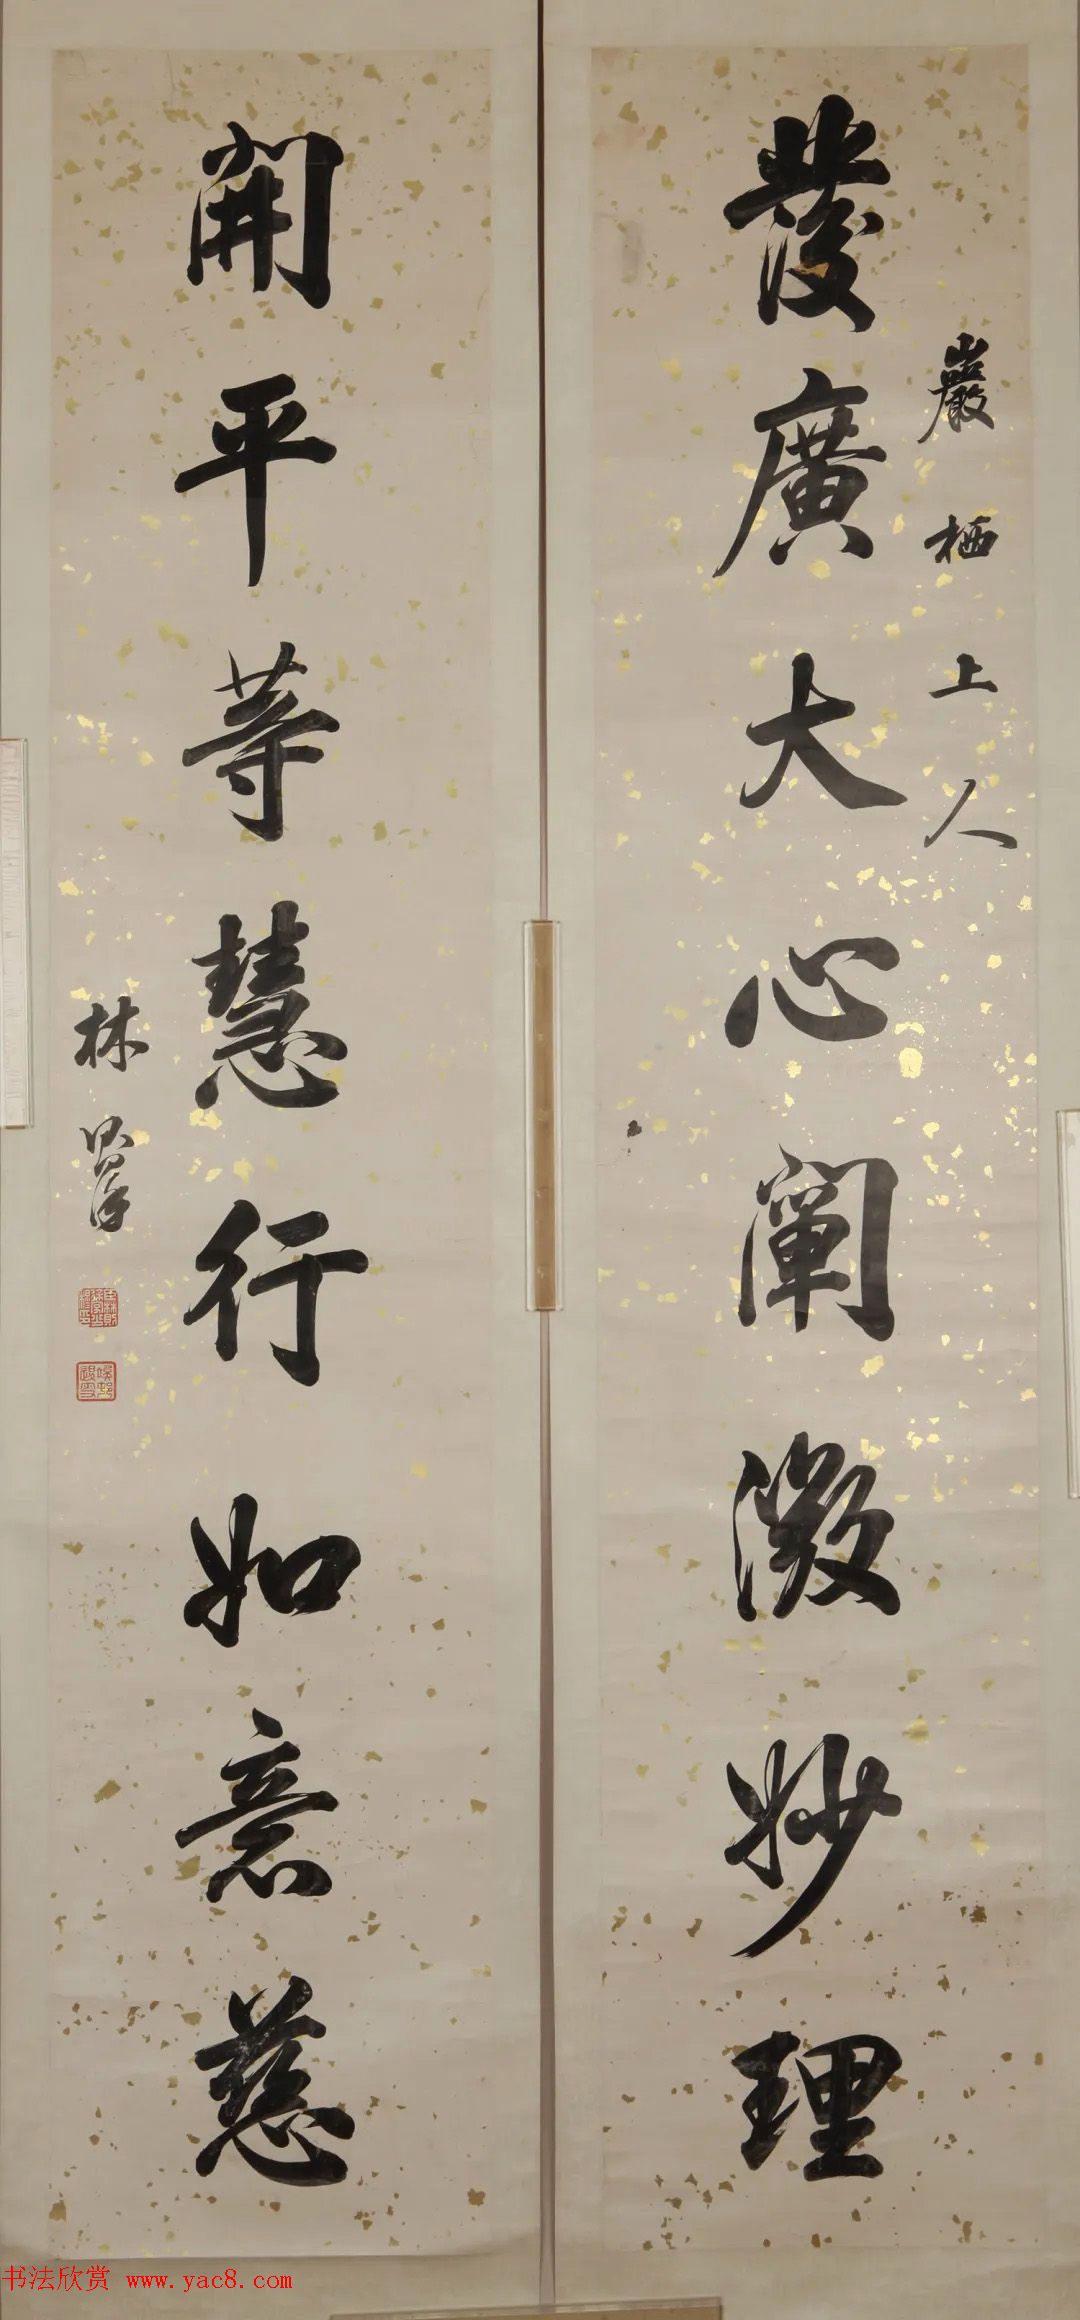 巖栖上人
發廣大心闡微妙理
開平等慧行如意慈
林則徐
書法欣赏 www.yac8.com